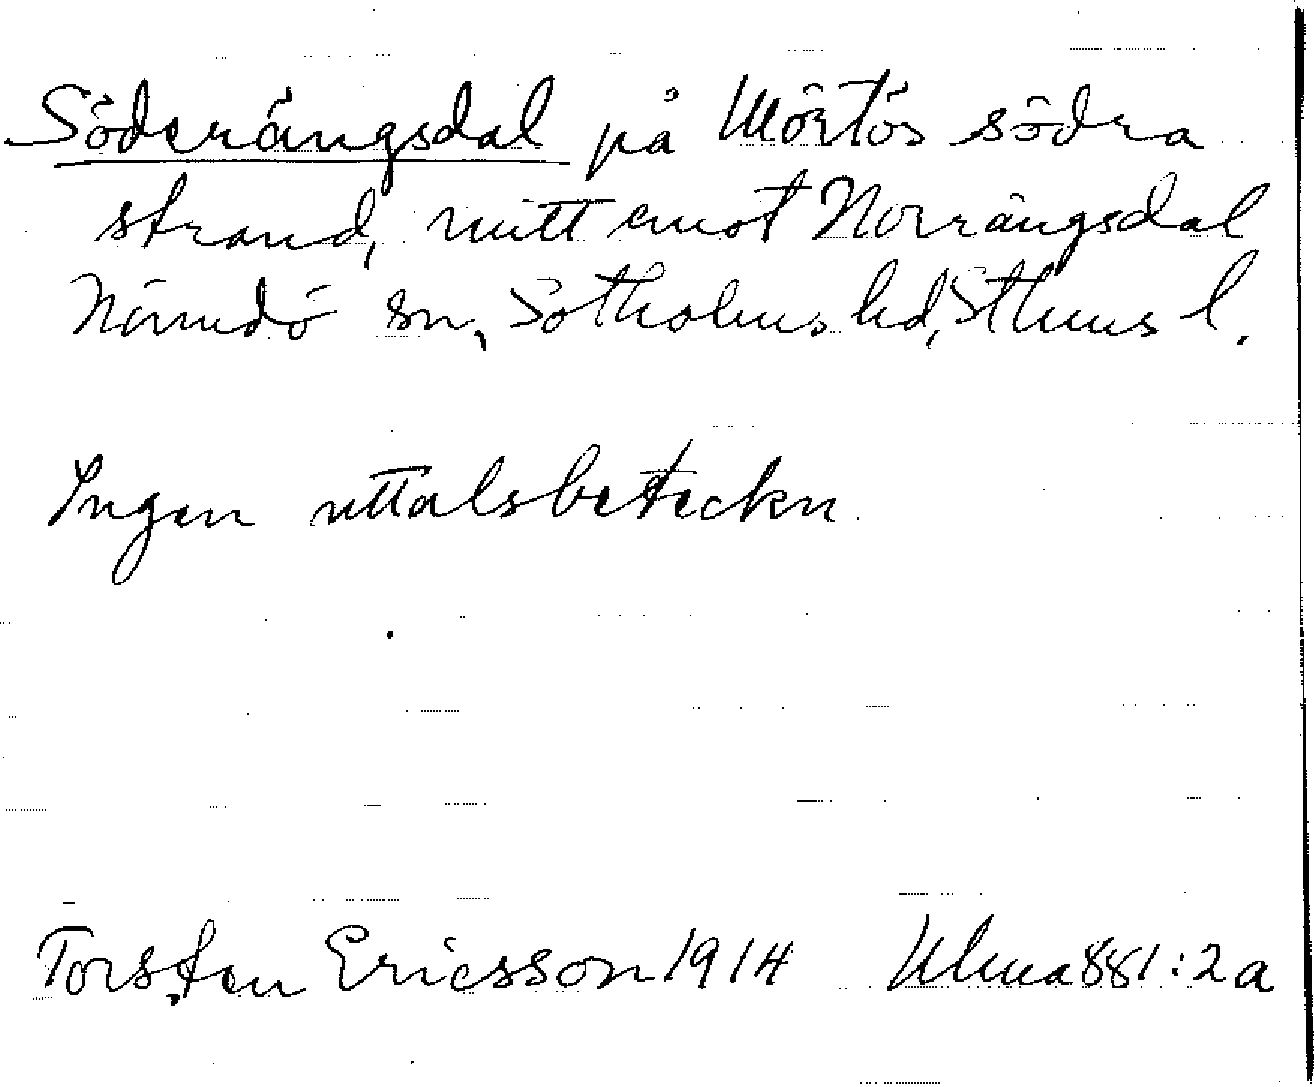 Söderängsdal på Mörtös södra
strand, mitt emot Norrängsdal
Nämdö sn, Sotholms hd, Sthms l.
Ingen uttalsbeteckn.
Torsten Ericsson 1914 Ulma 881:2a